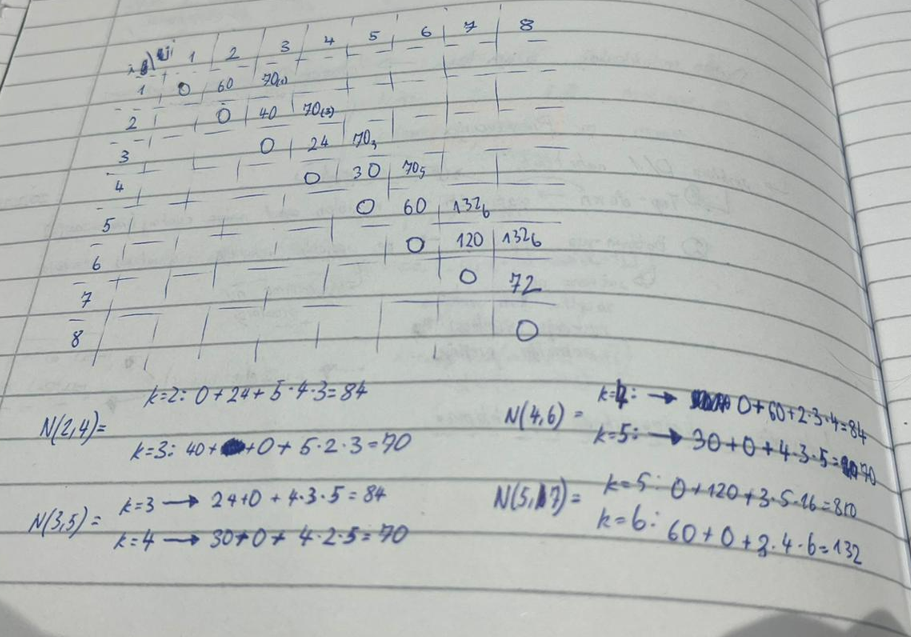 i\j 1 2 3 4 5 6 7 8
1 0 60 70(1)
2 0 40 70(3)
3 0 24 70₃
4 0 30 70₅
5 0 60 132₆
6 0 120 132₆
7 0 72
8 0
N(2,4)=
k=2: 0+24+5·4·3=84
k=3: 40+0+5·2·3=70
N(3,5)=
k=3 → 24+0+4·3·5=84
k=4 → 30+0+4·2·5=70
N(4,6)=
k=4: → 0+60+2·3·4=84
k=5: → 30+0+4·3·5=70
N(5,7)=
k=5: 0+120+3·5·16=810
k=6: 60+0+3·4·6=132